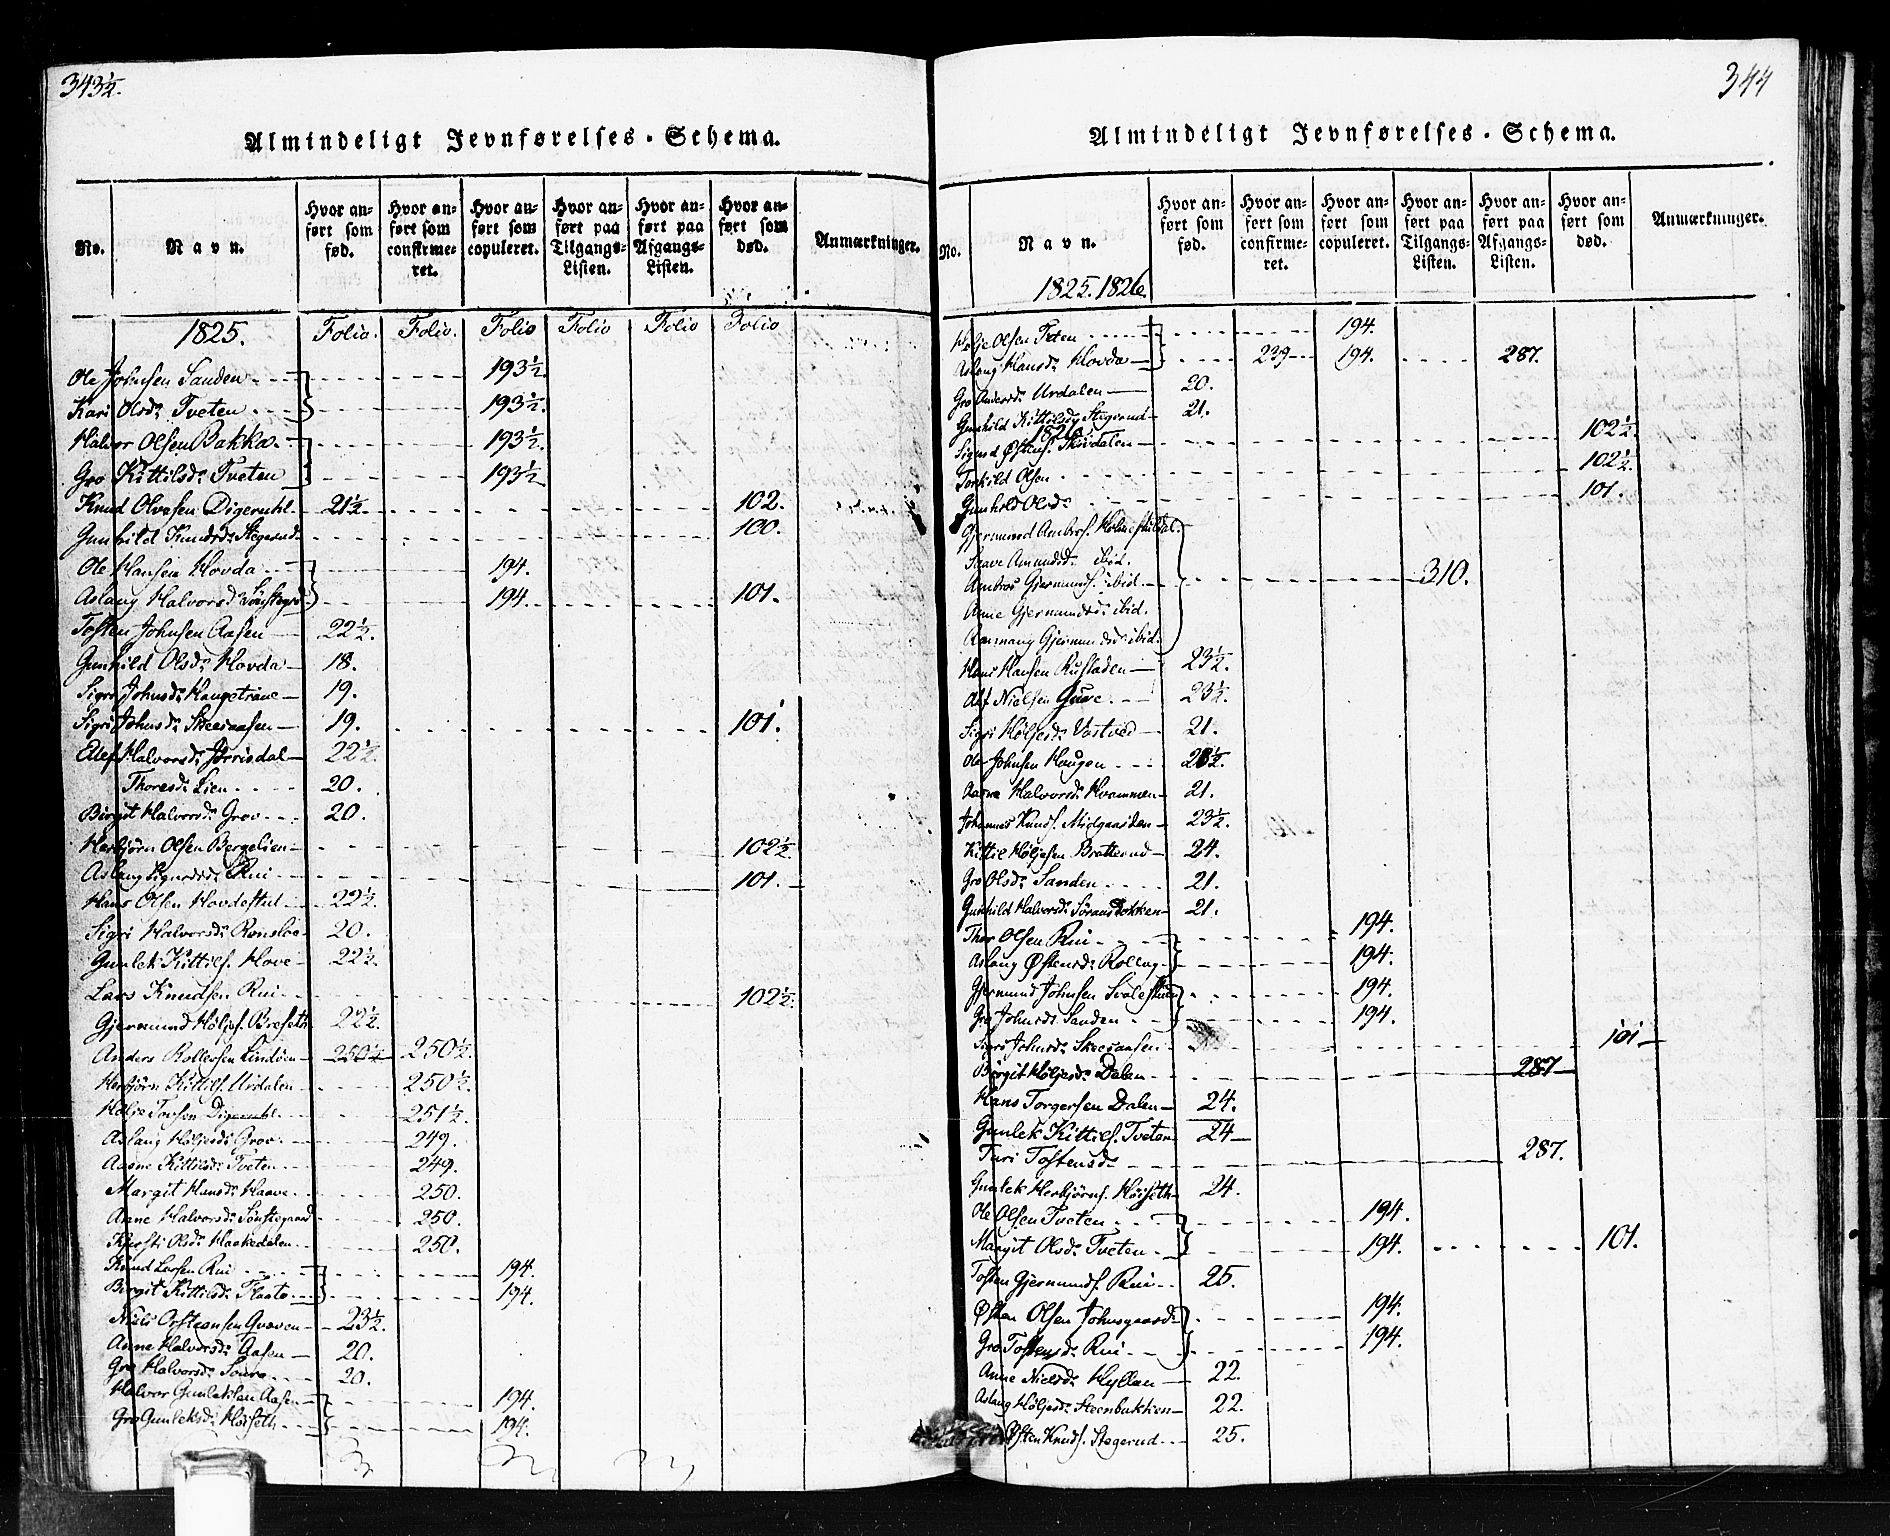 343½.
Almindeligt Jevnførelses-Schema.
No. Navn. Hvor anført som fød. Hvor anført som confirmeret. Hvor anført som copuleret. Hvor anført paa Tilgangs-Listen. Hvor anført paa Afgangs-Listen. Hvor anført som død. Anmærkninger.
1825. Folio. Folio. Folio Folio Folio Folio
Ole Johnsen Sanden 193½
Kari Olsd: Tveten 193½.
Halvor Olsen Bakka 193½.
Gro Kittilsd: Tveten 193½
Knud Olvesen Digeruhl 21½ 102.
Gunhild Knudsd: Stegerud 100.
Ole Hansen Hovda 194.
Aslaug Halvorsd: 194. 101.
Tosten Johnsen Aasen 22½.
Gunhild Olsd: Hovda 18.
Sigri Johnsd: Haugetraae 19.
Sigri Johnsd: Skeesaasen 19. 101.
Ellef Halvorsd: Jørrisdal 22½
Thoresd: Lien 20.
Birgit Halvorsd: Grov 20.
Herbjørn Olsen Bergelien 102½
Aslaug Sigurdsd: Rui 101.
Hans Olsen Hovdestul 22½
Sigri Halvorsd: 20.
Gunlek Kittils. Hove 22½
Lars Knudsen Rui 102½.
Gjermund Høljes. Breseth 22½.
Anders Rollefsen Lindien 250½ 250½
Herbjørn Kittils. Urdalen 250½
Holje Tovsen Digeruhl 251½.
Aslaug Høljesd: Grov 249.
Aasne Kittilsd: Tveten 249.
Margit Hansd: Haave 250.
Anne Halvorsd: Sønstegaard 250.
Kjersti Olsd: Haakedalen 250.
Knud Larsen Rui 194.
Birgit Kittilsd: Flaata 194.
Niels Graven 23½.
Anne Halvorsd: Aasen 20.
Gro Halvorsd: 20.
Halvor Gunleksen Aasen 194.
Gro Gunleksd: Høiseth 194.
344
Almindeligt Jevnførelses-Schema.
No. Navn. Hvor anført som fød. Hvor anført som confirmeret. Hvor anført som copuleret. Hvor anført paa Tilgangs-Listen. Hvor anført paa Afgangs-Listen. Hvor anført som død. Anmærkninger.
1825. 1826.
Olsen Tveten 194.
Aslaug Hansd: Hovda 239 194. 287.
Gro Andersd: Urdalen 20.
Gunhild Kittilsd: Stegerud 21.
1826.
Sigurd Østens. 102½.
Torkild Olsen 102½.
Gunhild Olsd: 101.
Gjermund Ambros.
Amundsd: ibid.
Ambros Gjermunds. ibid. 310.
Anne Gjermundsd: ibid.
Gjermundsd: ibid.
Hans Hansen Rustaden 23½.
Alf Nielsen 23½.
Sigri Høljesd: 21.
Ole Johnsen Haugen 23½.
Aasne Halvorsd: Hvammen 21.
Johannes Knuds. Midgaarden 23½.
Kittil Høljesen Bratterud 24.
Gro Olsd: Sanden 21.
Gunhild Halvorsd: 21.
Thor Olsen Rui 194.
Aslaug Østensd: Rollag 194.
Gjermund Johnsen 194.
Gro Johnsd: Sanden 194.
Sigri Johnsd: Skeesaasen 101
Birgit Høljesd: Dalen 287
Hans Torgersen Dalen 24.
Gunlek Kittils. Tveten 24
Turi Tostensd: 287.
Gunlek Herbjørns. Høiseth 24.
Ole Olsen Tveten 194.
Margit Olsd: Tveten 194. 101.
Tosten Gjermunds. Rui 25.
Østen Olsen Johnsgaard 194.
Gro Tostensd: Rui 194.
Anne Nielsd: Hyllan 22.
Aslaug Høljesd: Steenbakken 22.
Østen Knuds. Stegerud 25.